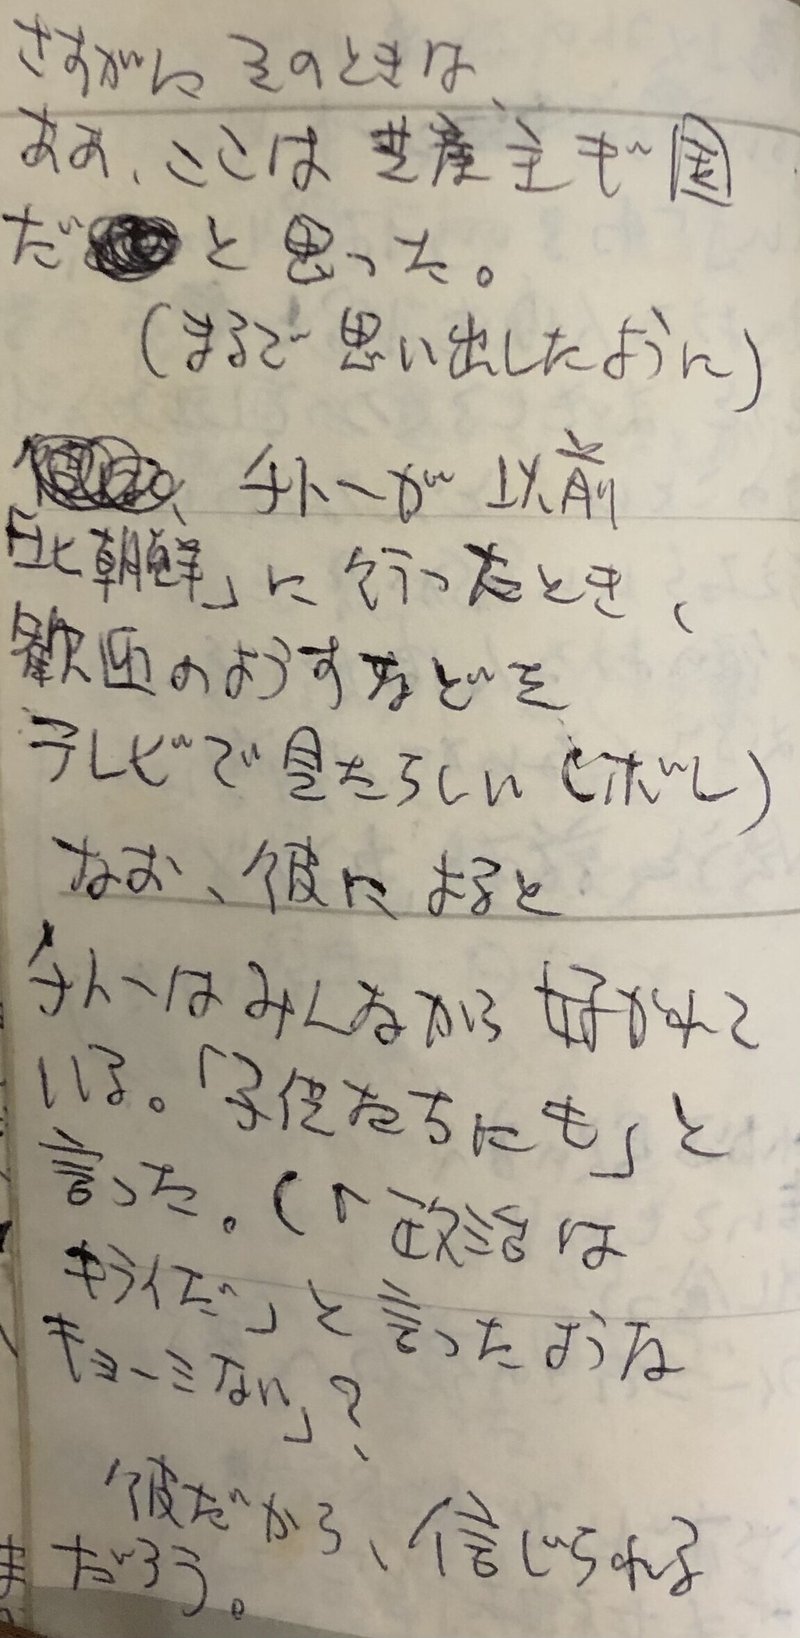 さすがに そのときは、
ああ、ここは 共産主ギ国
だ と思った。
(まるで思い出したように)
チトーが 以前
「北朝鮮」に行ったとき、
歓迎のようすなどを
テレビで見たらしい(ボレ)
なお、彼によると
チトーはみんなから好かれて
いる。「子供たちにも」と
言った。(「政治は
キライだ」と言ったような
キョーミない」?
彼だから、信じられる
だろう。